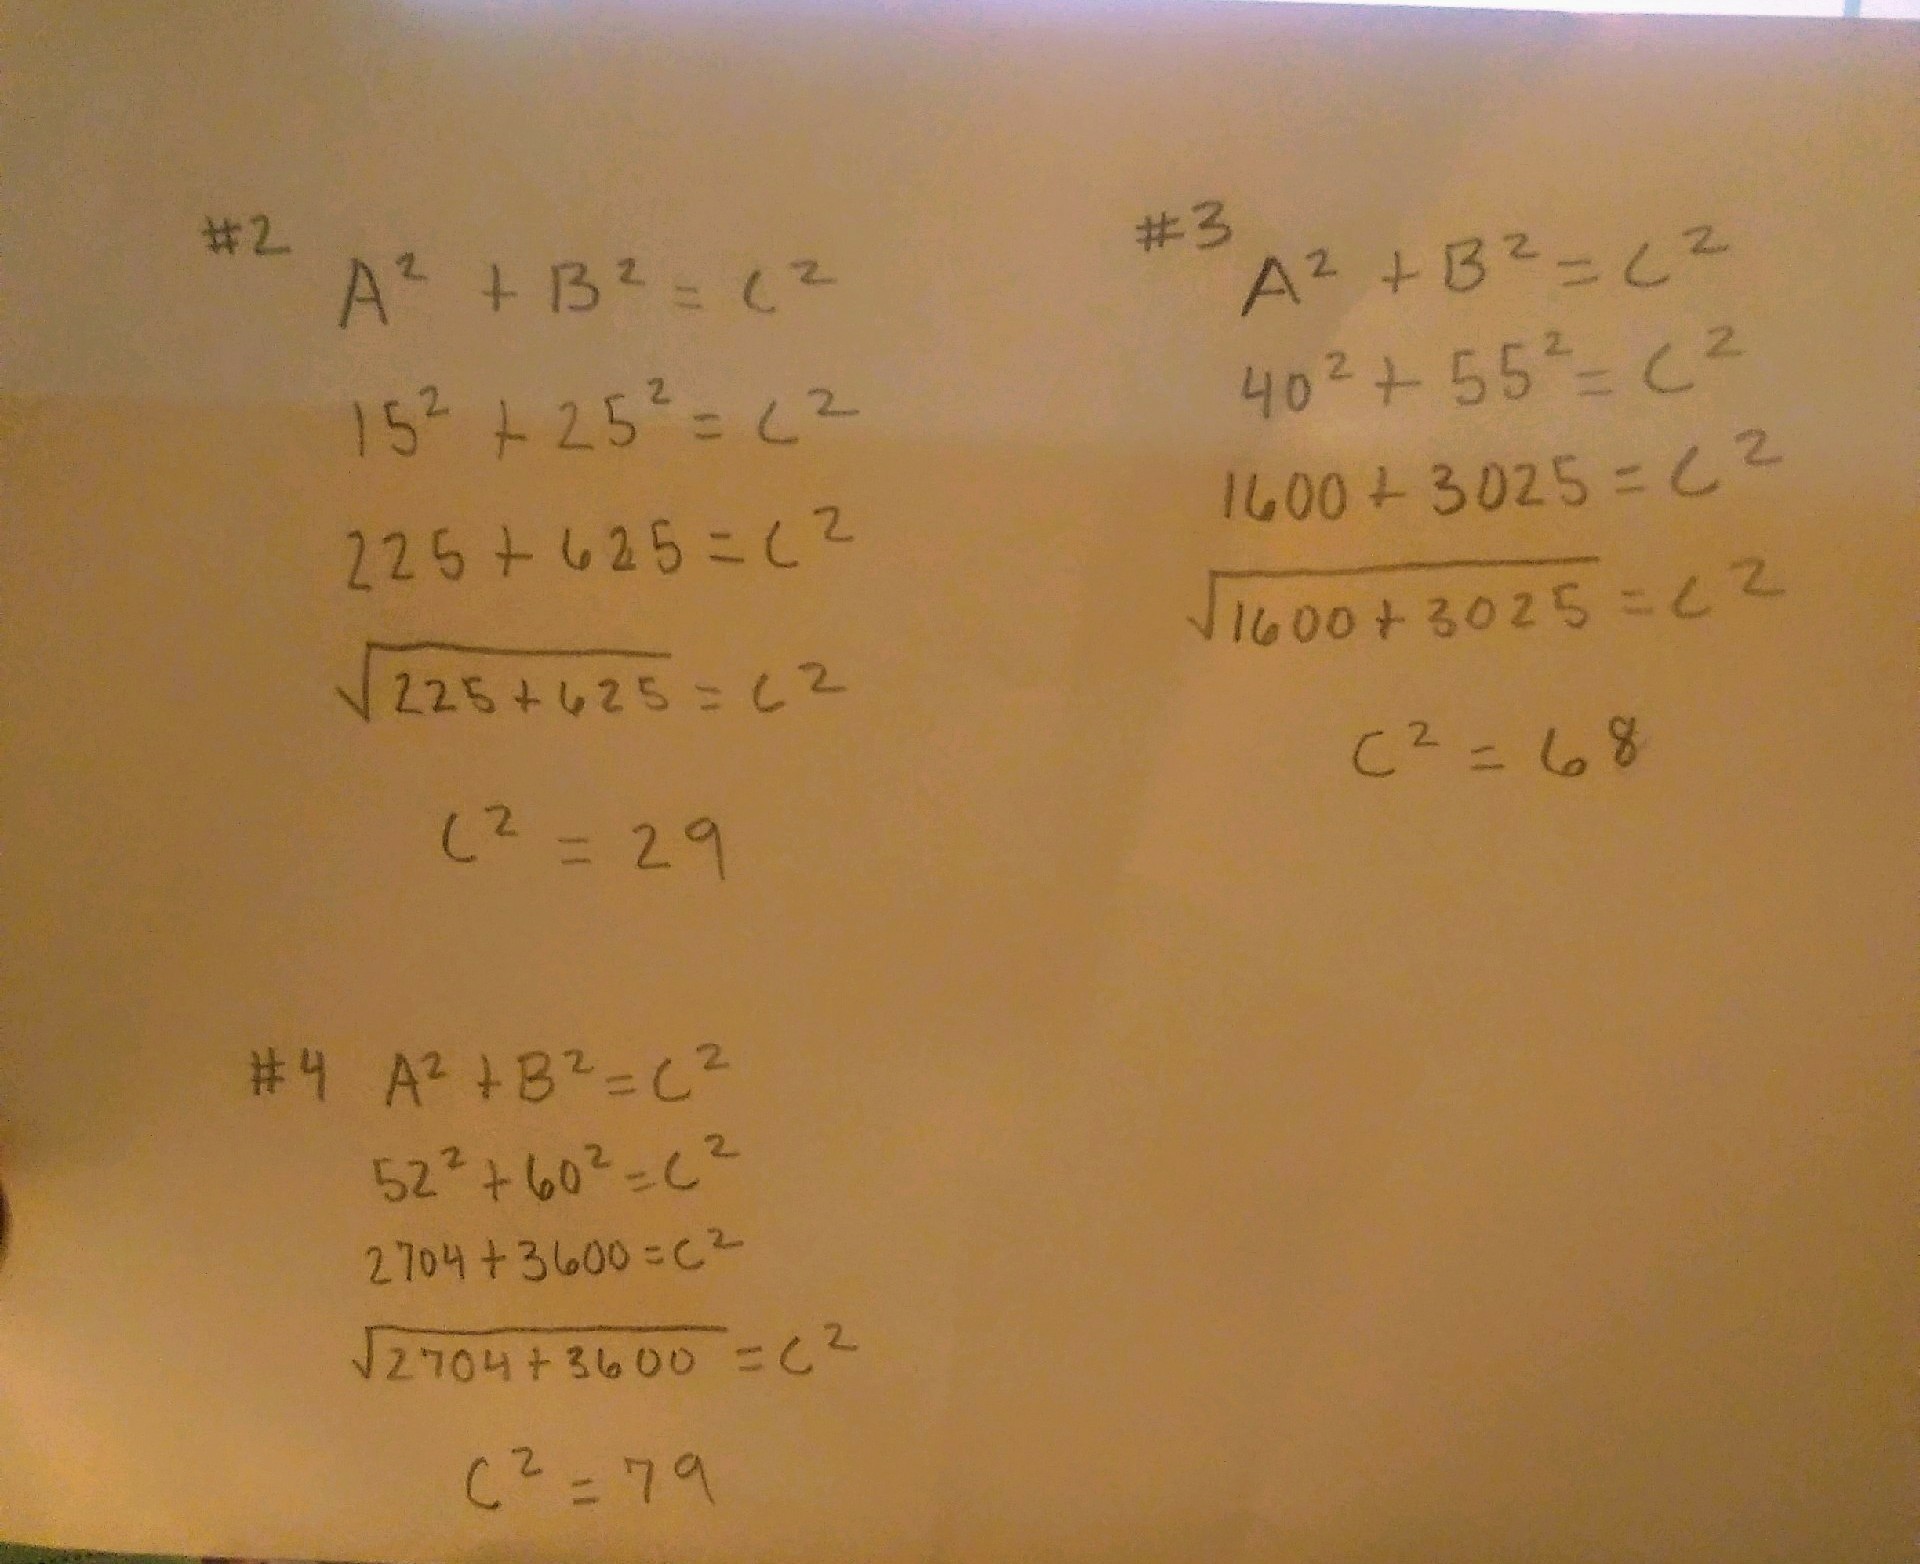 #2
A² + B² = C²
15² + 25² = C²
225 + 625 = C²
√225+625 = C²
C² = 29
#3
A² + B² = C²
40² + 55² = C²
1600 + 3025 = C²
√1600 + 3025 = C²
C² = 68
#4 A² + B² = C²
52² + 60² = C²
2704 + 3600 = C²
√2704 + 3600 = C²
C² = 79